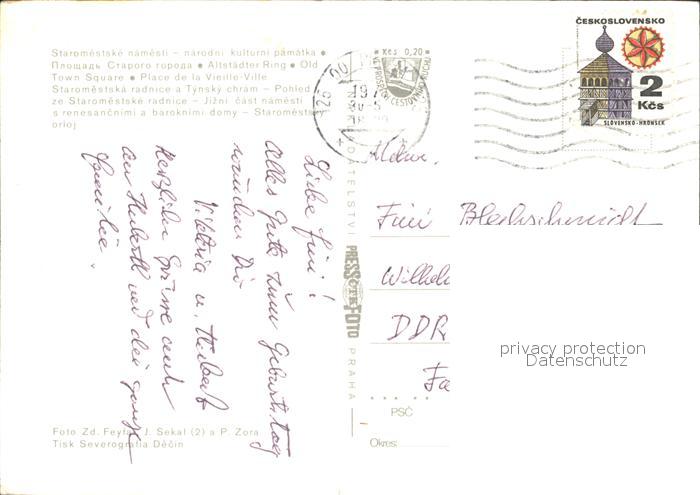 Staroměstské náměstí – národní kulturní památka •
Площадь Старого города • Altstädter Ring • Old
Town Square • Place de la Vieille-Ville
Staroměstská radnice a Týnský chrám – Pohled
ze Staroměstské radnice – Jižní část náměstí
s renesančními a barokními domy – Staroměstský
orloj
Liebe Fini!
Alles Gute zum Geburtstag
wünschen Dir
Viktoria u. Herbert
herzliche Grüsse auch
an Hubert und die ganze
Familie.
Foto Zd. Feyfar, J. Sekal (2) a P. Zora
Tisk Severografia Děčín
PRESSFOTO
PRAHA
Kčs 0,20
ČESKOSLOVENSKO
2
Kčs
SLOVENSKO-HRONSEK
Fini Blechschmidt
Wilhel
DDR
privacy protection
Datenschutz
PSČ
Okres: